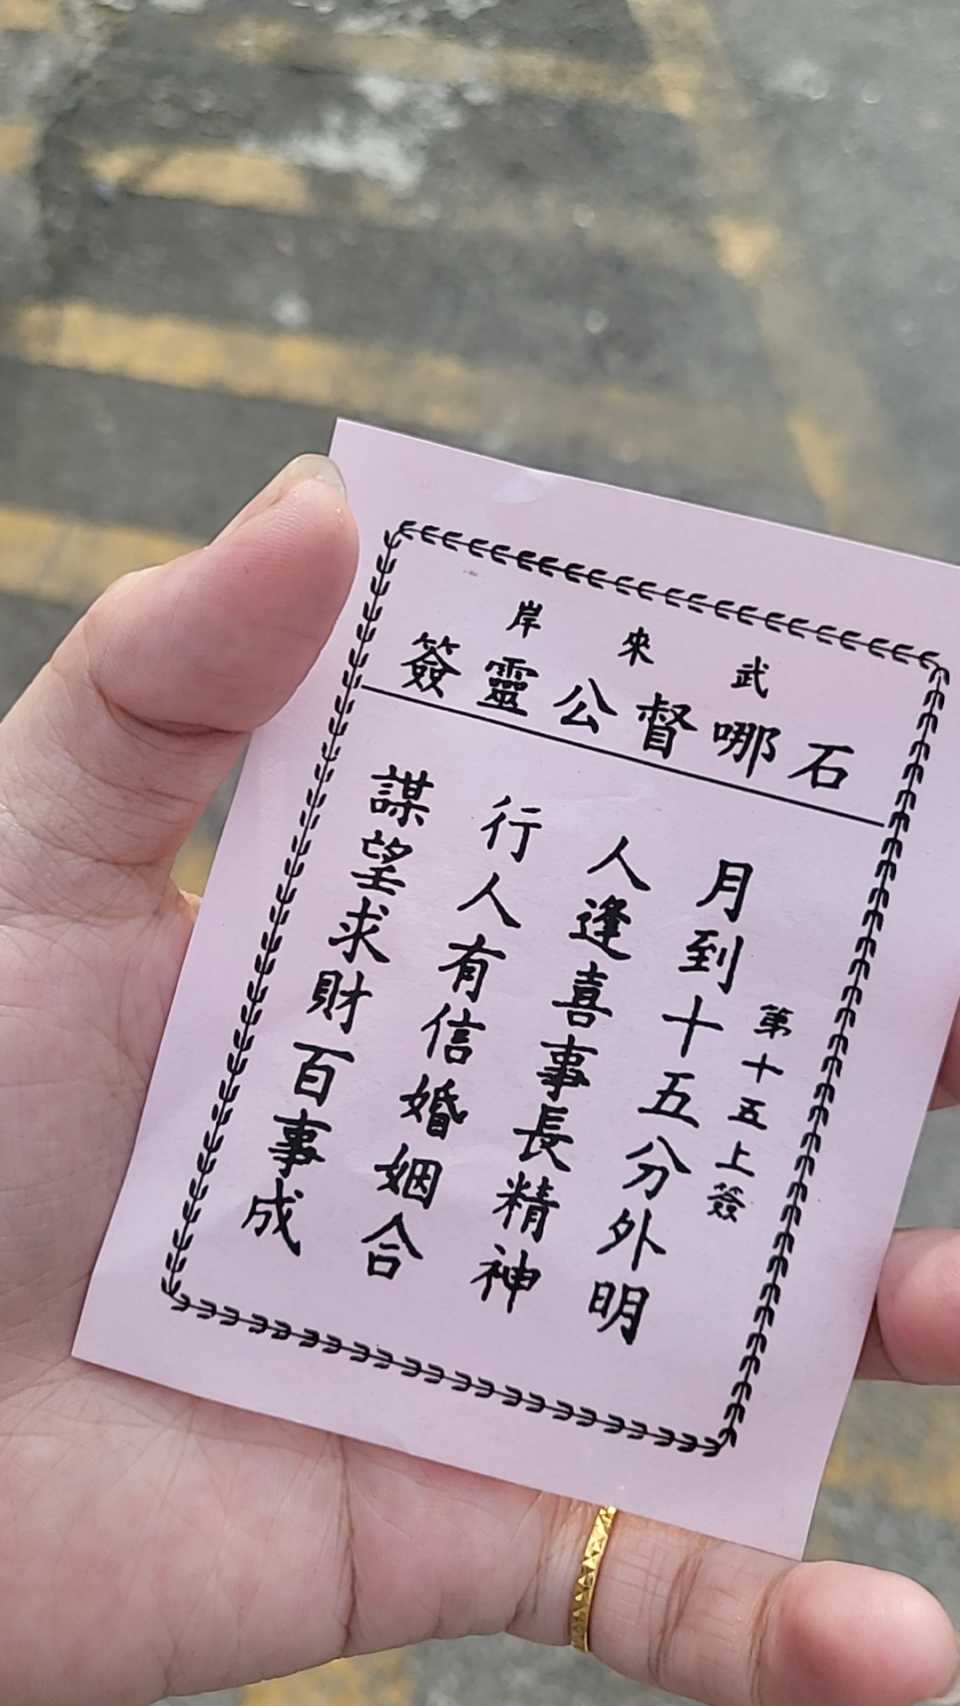 武來岸
石哪督公靈簽
第十五上簽
月到十五分外明
人逢喜事長精神
行人有信婚姻合
謀望求財百事成